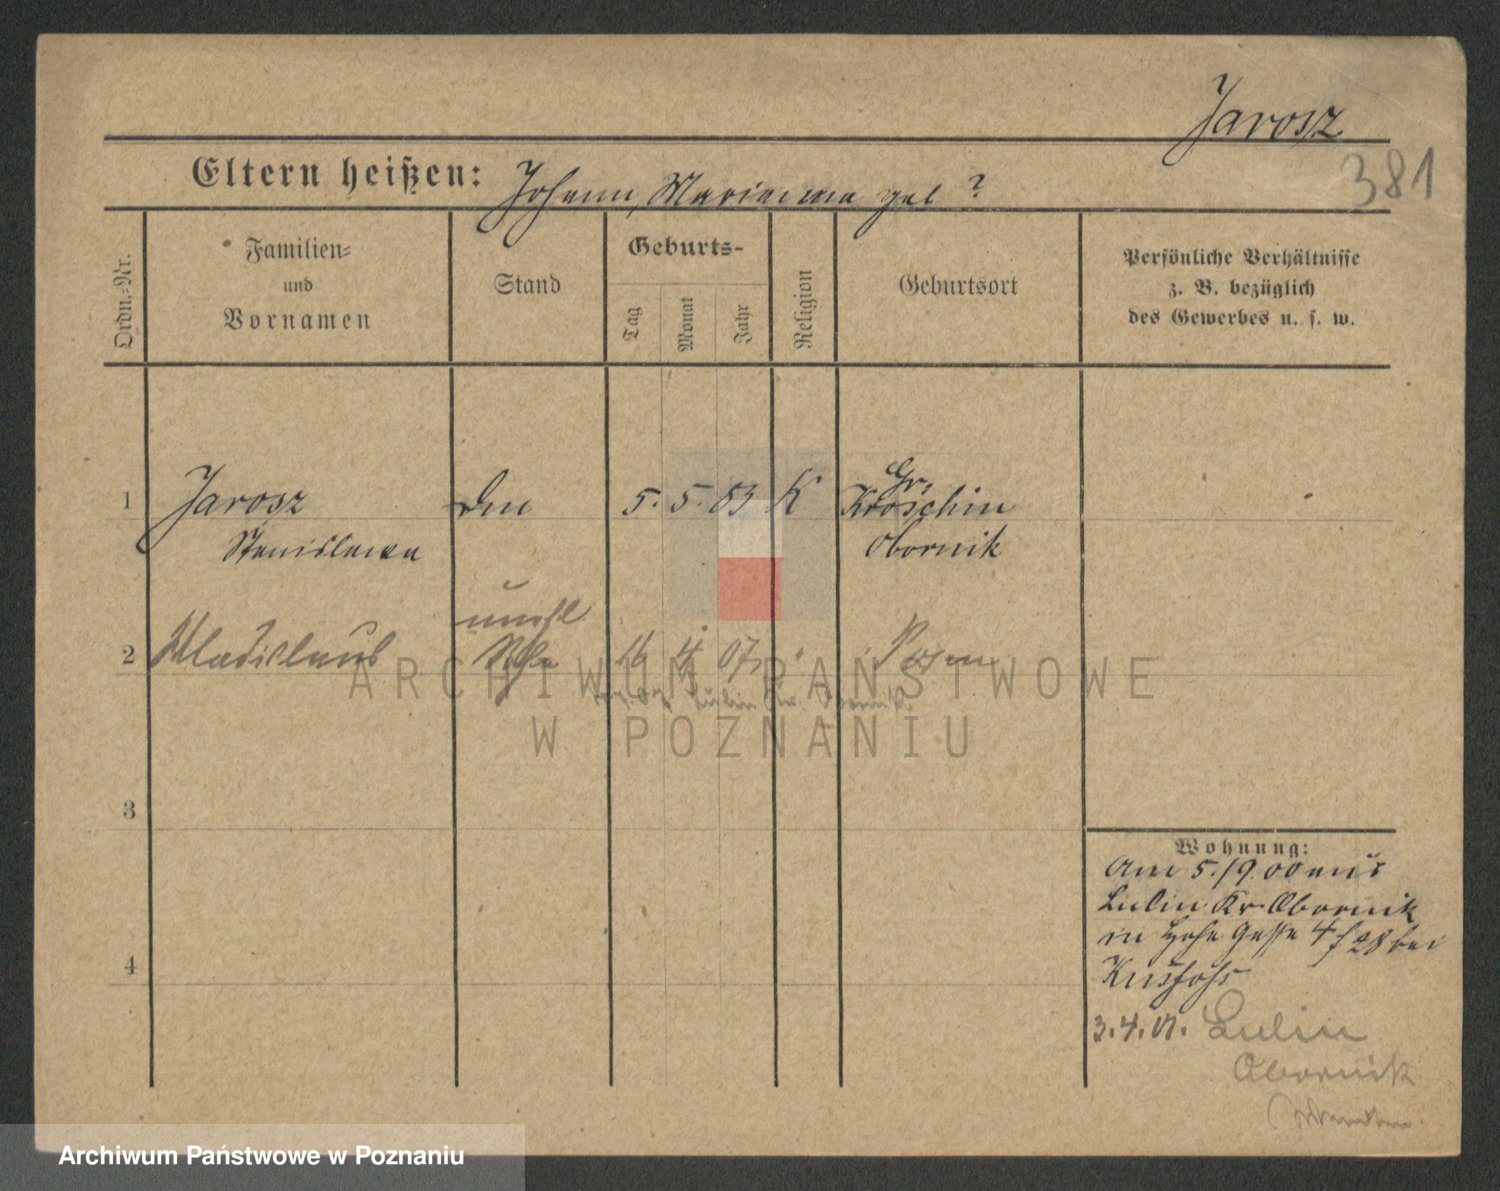 Jarosz
381
Eltern heißen: Johann, Marianna geb ?
Ordn.-Nr.
Familien-
und
Vornamen
Stand
Geburts-
Tag
Monat
Jahr
Religion
Geburtsort
Persönliche Verhältnisse
z. B. bezüglich
des Gewerbes u. s. w.
1
Jarosz
5. 5. 83 K
Gr.
Kroschin
Stanislawa
Obornik
unehl
2
Wladislaus
Sohn
16 4 07
Posen
Lulin Kr. Obornik
ARCHIWUM PAŃSTWOWE
W POZNANIU
3
4
Wohnung:
Am 5./9.00 aus
Lulin Kr. Obornik
in Hohe Gasse 4 bei
3.4.01. Lulin
Obornik
Archiwum Państwowe w Poznaniu